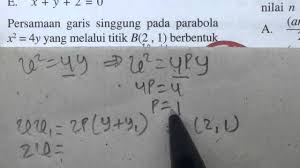 E. x + y + 2 = 0
Persamaan garis singgung pada parabola
x² = 4y yang melalui titik B(2 , 1) berbentuk
nilai n
A. (a
x² = 4y ⇒ x² = 4Py
4P = 4
P = 1
xx₁ = 2P(y+y₁) (2,1)
2x =